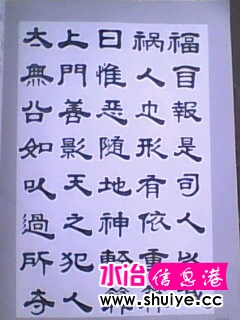 太上曰祸福
無門惟人自
召善恶之報
如影随形是
以天地有司
過之神依人
所犯輕重以
夺人
水冶信息港
www.shuiye.cc